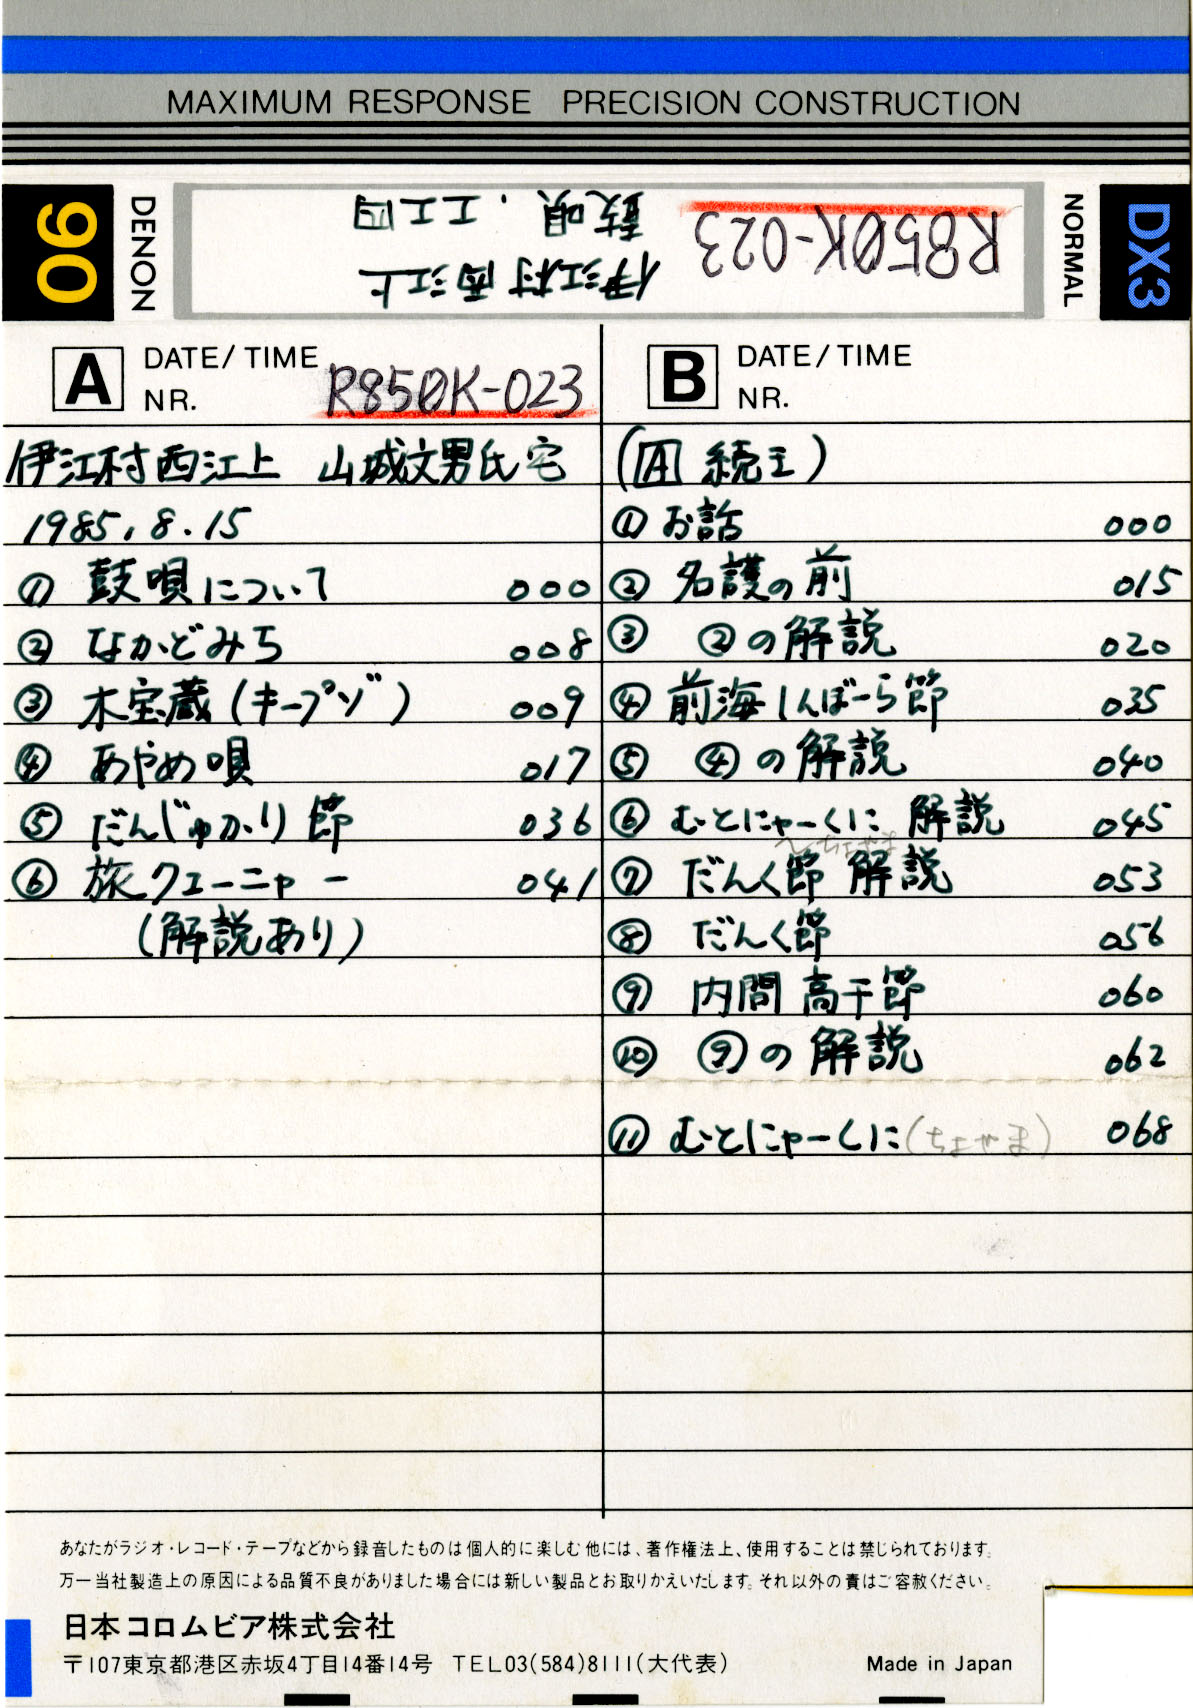 MAXIMUM RESPONSE PRECISION CONSTRUCTION
90
DENON
R850K-023
伊江村西江上
鼓唄・工工四
NORMAL
DX3
A DATE/TIME
NR. R850K-023
伊江村西江上 山城文男氏宅
1985.8.15
① 鼓唄について 000
② なかどみち 008
③ 木宝蔵(キープゾ) 009
④ あやめ唄 017
⑤ だんじゅかり節 036
⑥ 旅クェーニャー 041
(解説あり)
B DATE/TIME
NR.
(A 続き)
① お話 000
② 名護の前 015
③ ②の解説 020
④ 前海しんぼーら節 035
⑤ ④の解説 040
⑥ むとにゃーくに 解説 045
ちょやま
⑦ だんく節 解説 053
⑧ だんく節 056
⑨ 内間高干節 060
⑩ ⑨の解説 062
⑪ むとにゃーくに(ちょやま) 068
あなたがラジオ・レコード・テープなどから録音したものは個人的に楽しむ他には、著作権法上、使用することは禁じられております。
万一当社製造上の原因による品質不良がありました場合には新しい製品とお取りかえいたします。それ以外の責はご容赦ください。
日本コロムビア株式会社
〒107東京都港区赤坂4丁目14番14号 TEL03(584)8111(大代表)
Made in Japan